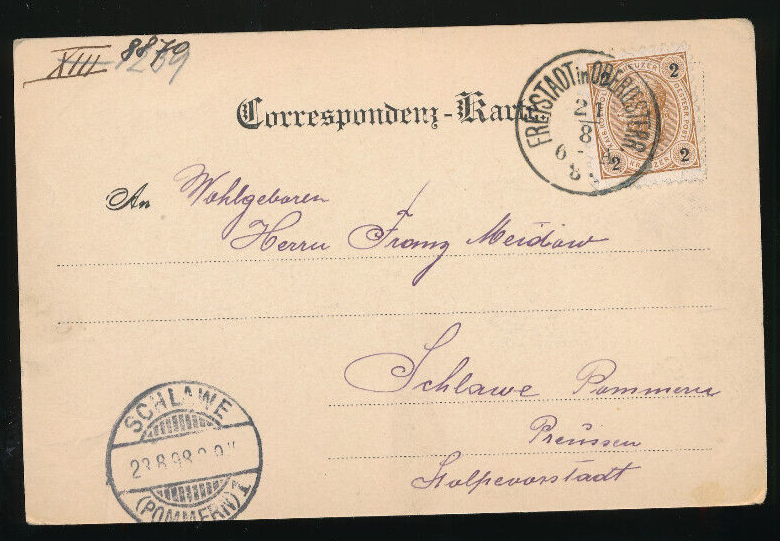 XIII 8870
Correspondenz-Karte
FREISTADT in OBEROESTERR.
21
8
6
2 KREUZER 2
2
An Wohlgeboren
Herrn Franz Meidow
Schlawe Pommern
Preussen
Stolpevorstadt
SCHLAWE
23.8.98
(POMMERN)